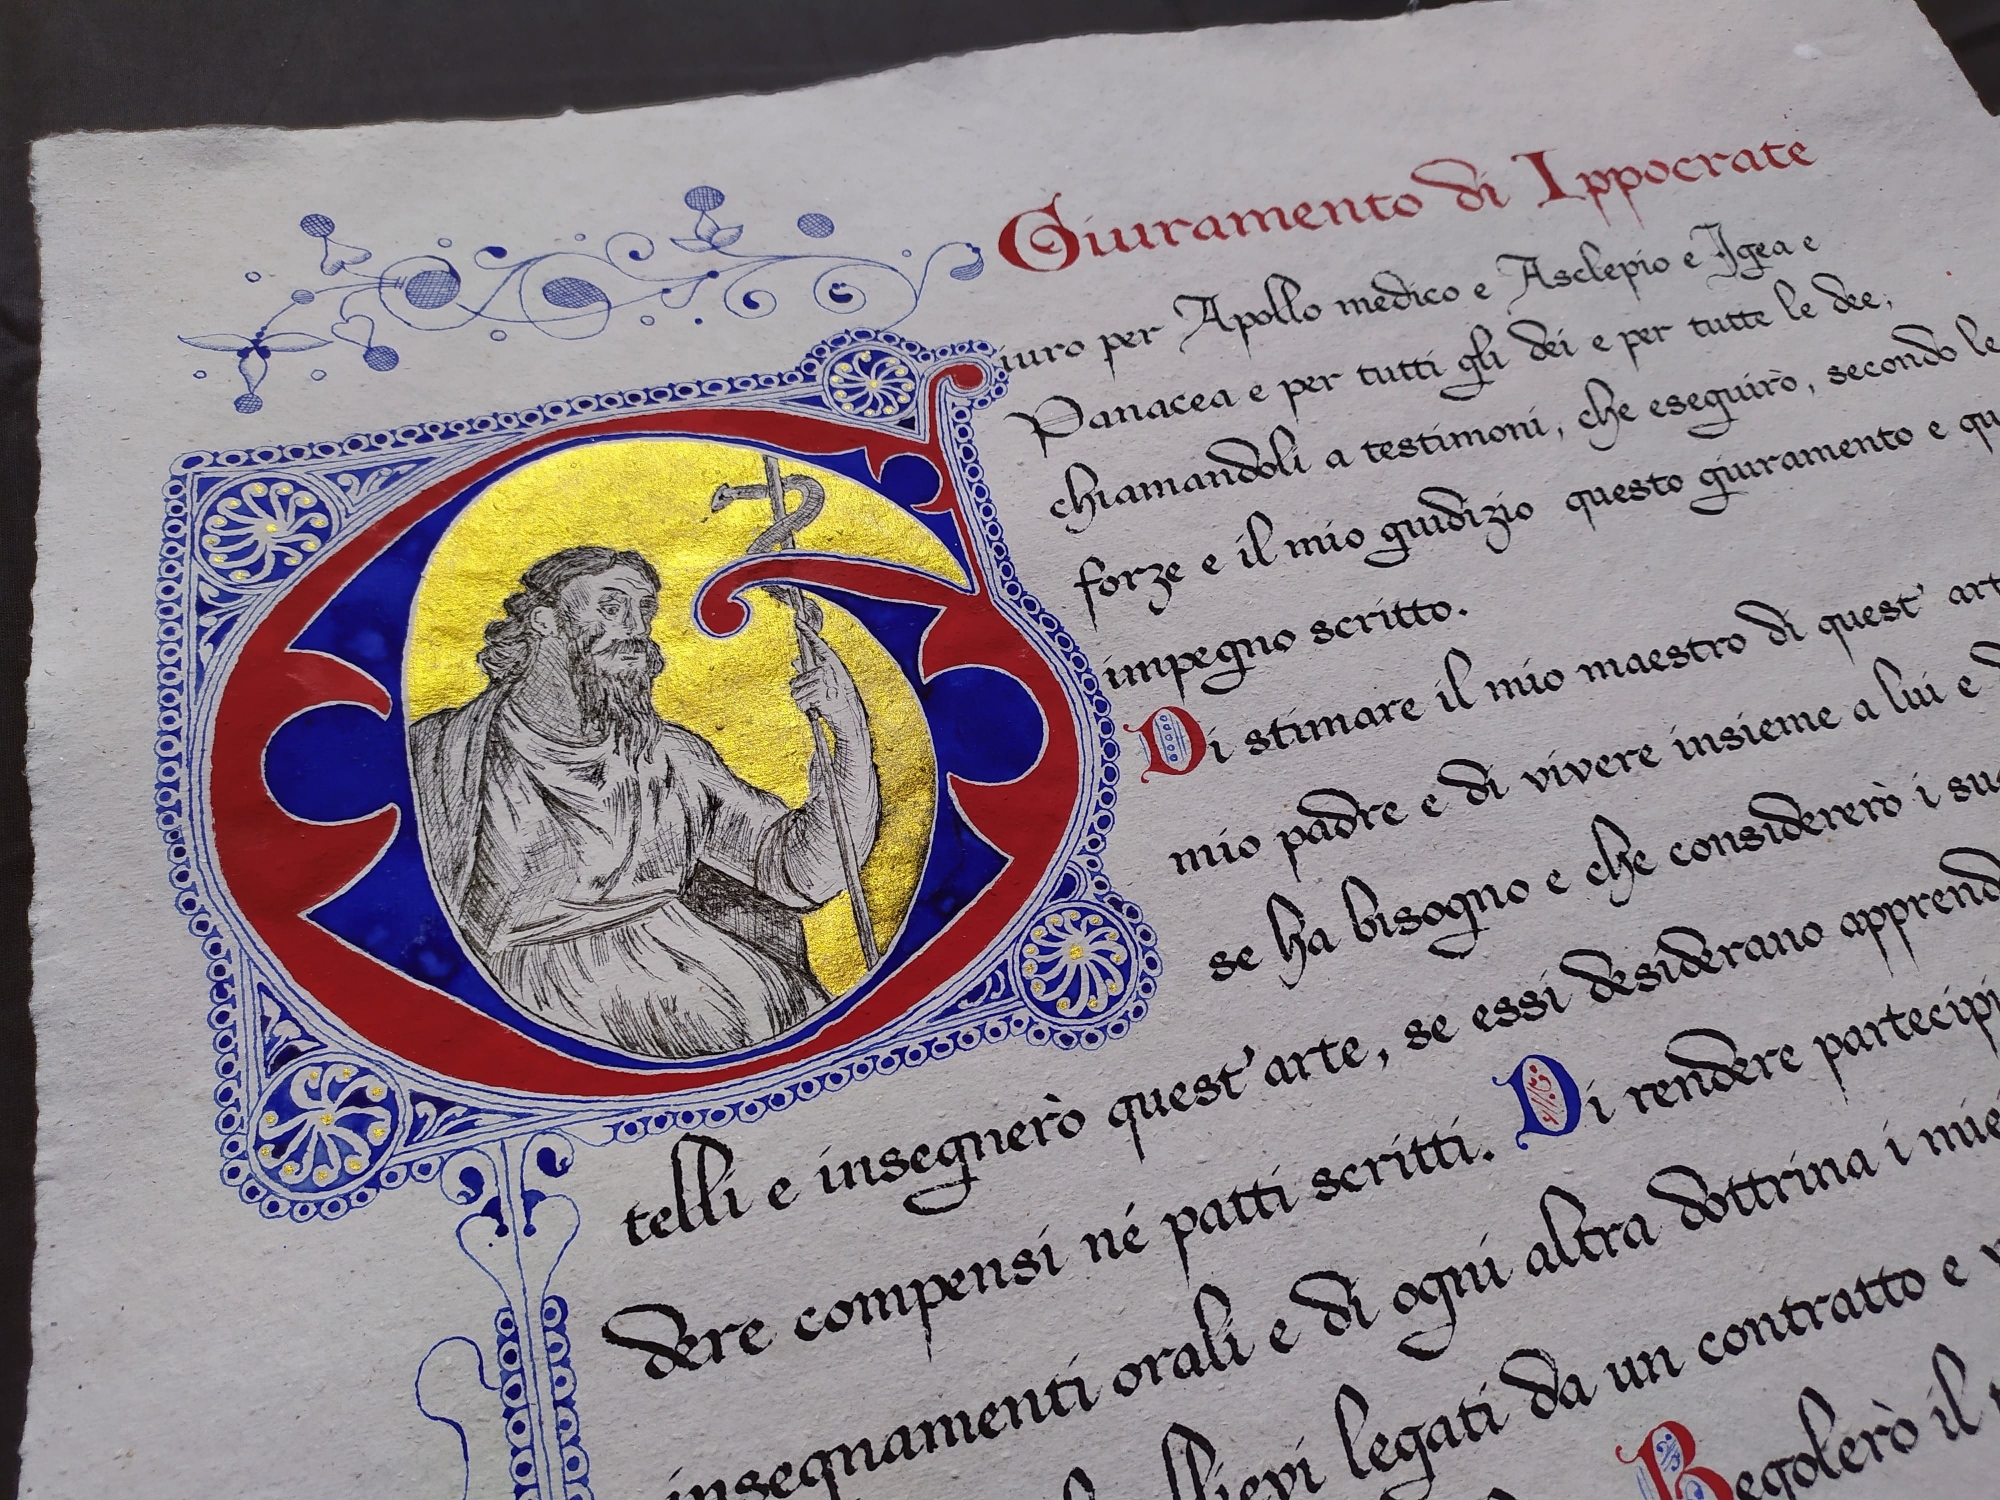 Giuramento di Ippocrate
Giuro per Apollo medico e Asclepio e Igea e
Panacea e per tutti gli dei e per tutte le dee,
chiamandoli a testimoni, che eseguirò, secondo le
forze e il mio giudizio questo giuramento e qu
impegno scritto.
Di stimare il mio maestro di quest' art
mio padre e di vivere insieme a lui e d
se ha bisogno e che considererò i su
telli e insegnerò quest'arte, se essi desiderano apprend
dere compensi né patti scritti. Di rendere partecipi
insegnamenti orali e di ogni altra dottrina i mie
llievi legati da un contratto e v
Regolerò il t